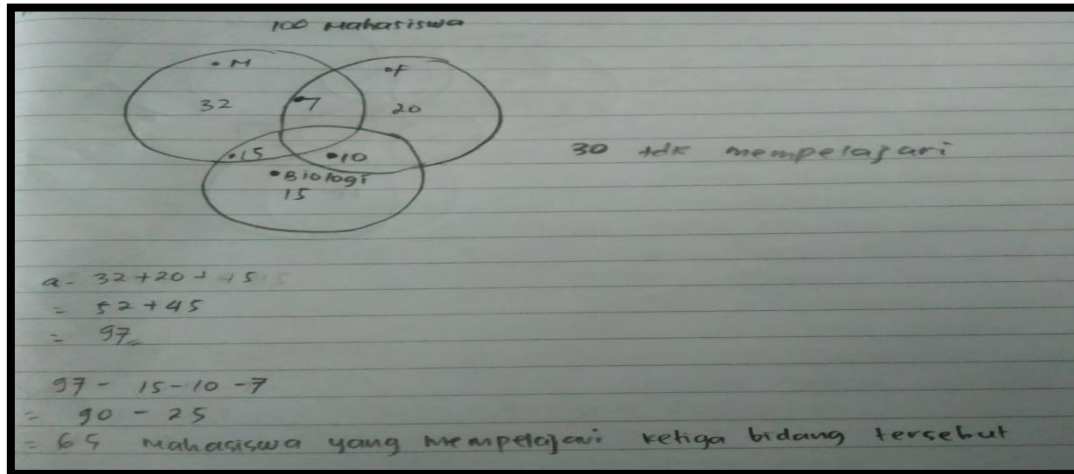 100 Mahasiswa
• M
• F
32
7
20
• 15
• 10
• Biologi
15
30 tdk mempelajari
a - 32 + 20 + 45
= 52 + 45
= 97
97 - 15 - 10 - 7
= 90 - 25
= 65 Mahasiswa yang mempelajari ketiga bidang tersebut